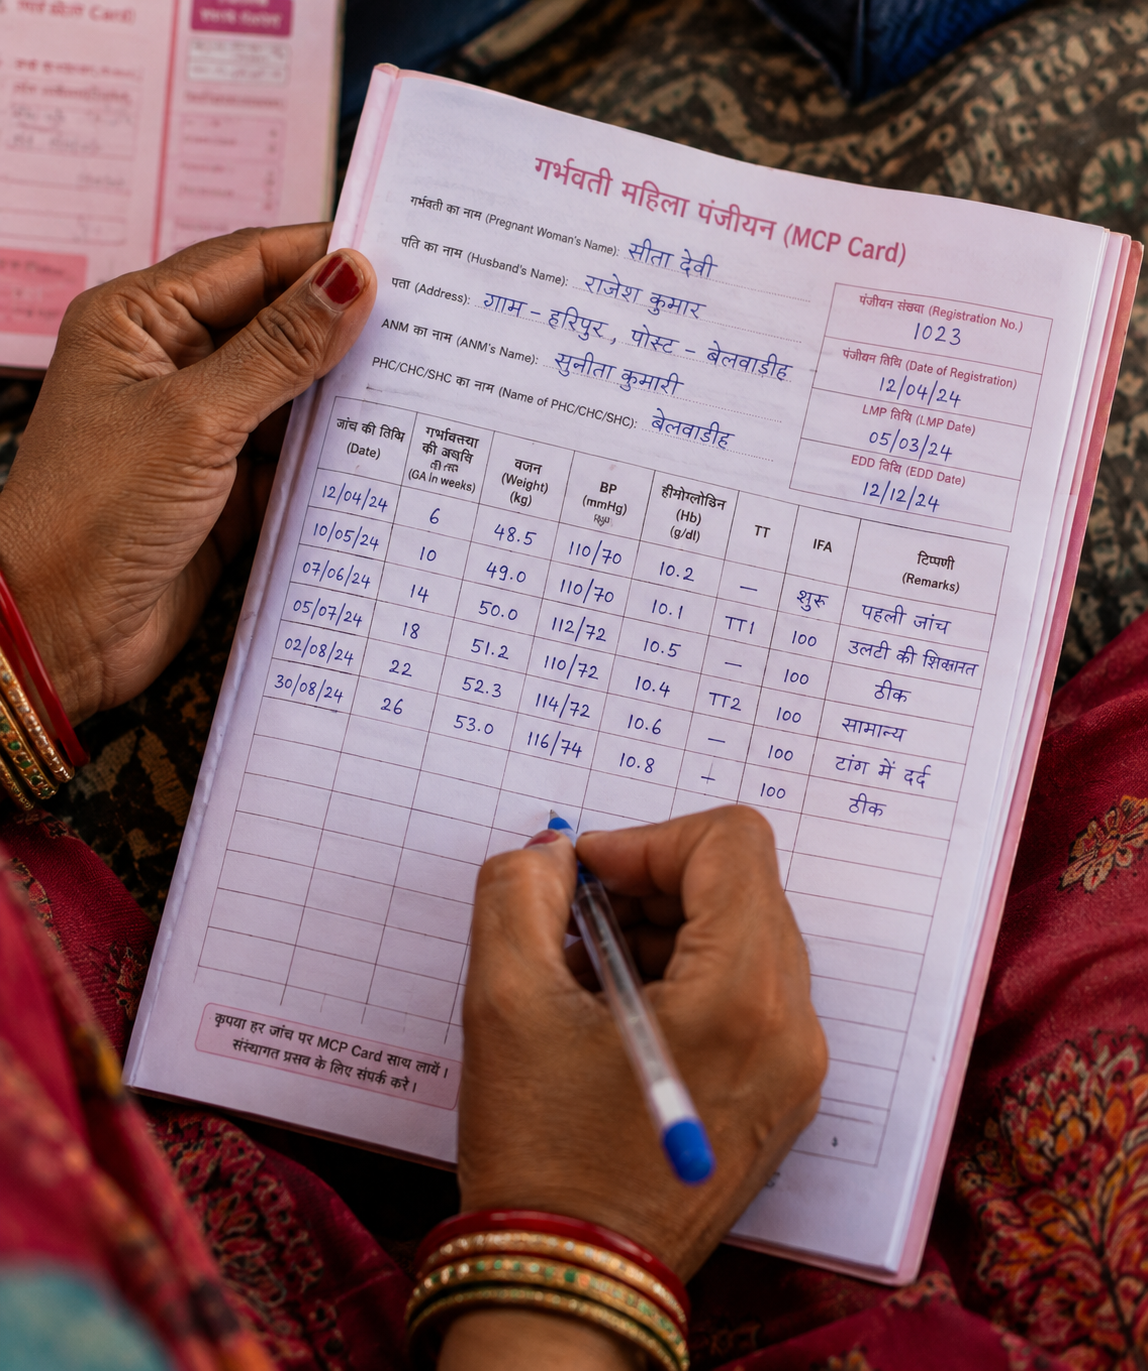 Card)
गर्भवती महिला पंजीयन (MCP Card)
गर्भवती का नाम (Pregnant Woman's Name): सीता देवी
पति का नाम (Husband's Name): राजेश कुमार
पता (Address): ग्राम - हरिपुर, पोस्ट - बेलवाड़ीह
ANM का नाम (ANM's Name): सुनीता कुमारी
PHC/CHC/SHC का नाम (Name of PHC/CHC/SHC): बेलवाड़ीह
पंजीयन संख्या (Registration No.)
1023
पंजीयन तिथि (Date of Registration)
12/04/24
LMP तिथि (LMP Date)
05/03/24
EDD तिथि (EDD Date)
12/12/24
जांच की तिथि (Date) की (GA in weeks) वजन (Weight) (kg) BP (mmHg) (Hb) (g/dl) TT IFA टिप्पणी (Remarks)
12/04/24 6 48.5 110/70 10.2 — शुरू पहली जांच
10/05/24 10 49.0 110/70 10.1 TT1 100 उलटी की
07/06/24 14 50.0 112/72 10.5 — 100 ठीक
05/07/24 18 51.2 110/72 10.4 TT2 100 सामान्य
02/08/24 22 52.3 114/72 10.6 — 100 टांग में दर्द
30/08/24 26 53.0 116/74 10.8 + 100 ठीक
कृपया हर जांच पर MCP Card साथ लायें।
संस्थागत प्रसव के लिए संपर्क करे।